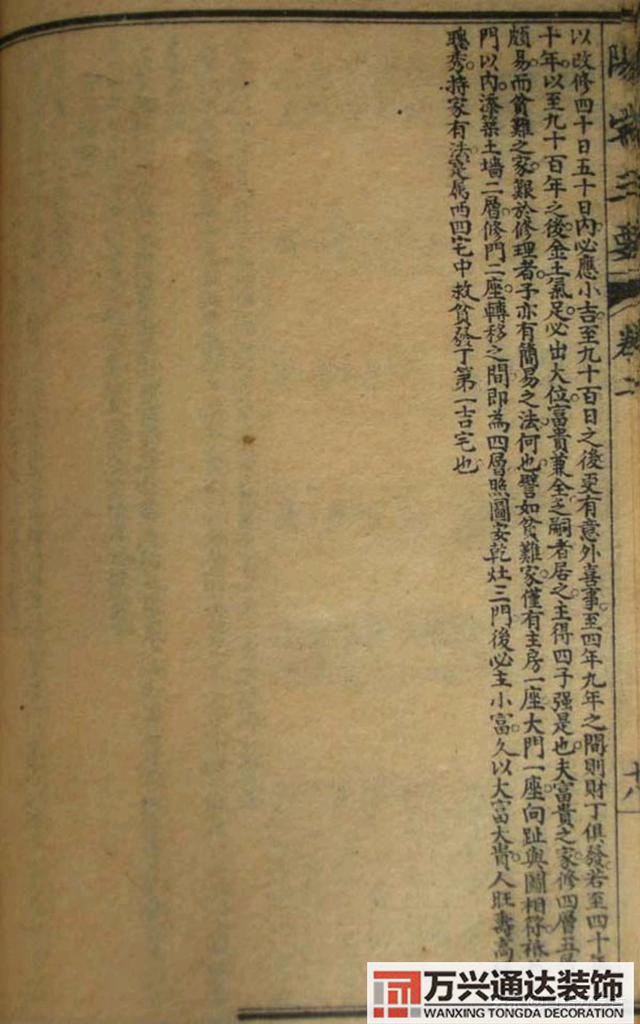 陽宅三要 卷二 十八
以改修四十日五十日內必應小吉至九十百日之後更有意外喜事至四年九年之間則財丁俱發若至四十年
十年以至九十百年之後金土氣足必出大位富貴兼全乏嗣者居之主得四子强是也夫富貴之家修四層五層
頗易而貧難之家艱於修理者子亦有簡易之法何也譬如貧難家僅有主房一座大門一座向趾與圖相符祇
門以內添築土墻二層修門二座轉移之間即為四層照圖安乾灶三門後必主小富久以大富大貴人旺壽高
聰秀持家有法定屬西四宅中救貧發丁第一吉宅也
万兴通达装饰
WANXING TONGDA DECORATION